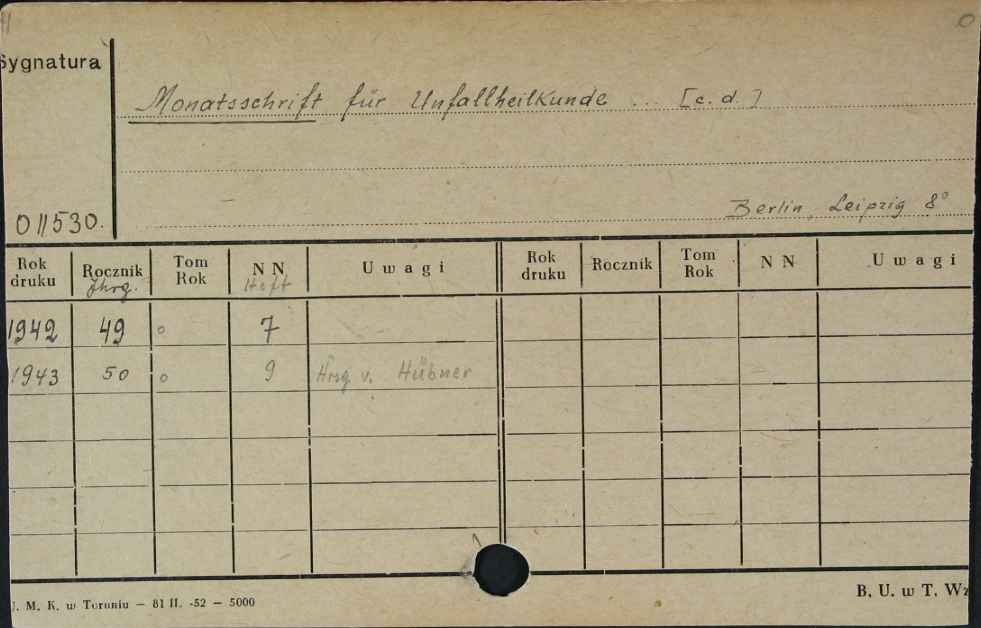 Sygnatura
Monatsschrift für Unfallheilkunde ... [c.d.]
Berlin, Leipzig 8°
011530.
Rok druku Rocznik Jhrg. Tom Rok NN Heft Uwagi Rok druku Rocznik Tom Rok NN Uwagi
1942 49 ° 7
1943 50 ° 9 Hrsg v. Hübner
U. M. K. w Toruniu — 81 II. -52 — 5000
B. U. w T. Wz